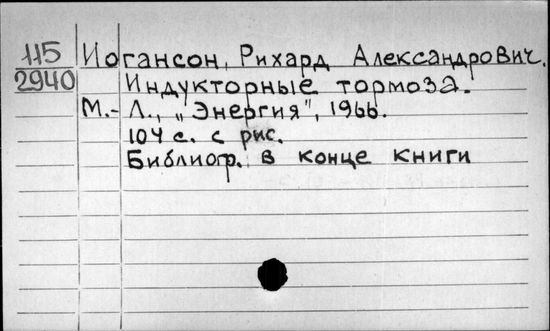 115 Иогансон, Рихард Александрович.
2940 Индукторные тормоза.
М.-Л., „Энергия", 1966.
104 с. с рис.
Библиогр. в конце книги